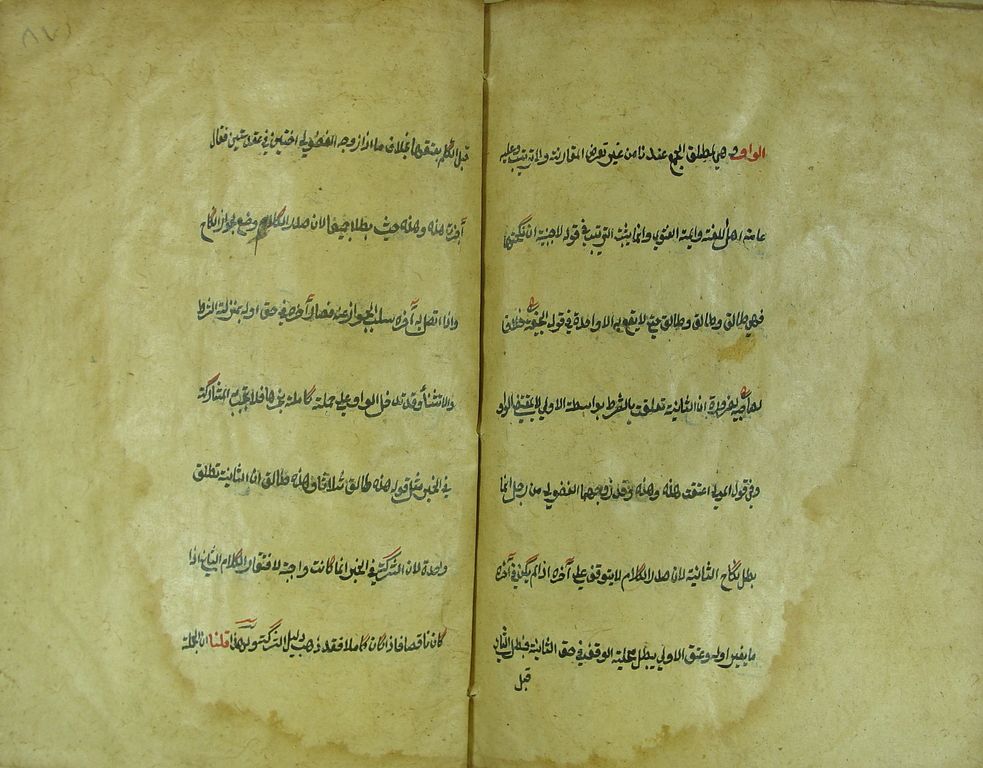 الواو وهي لمطلق الجمع عندنا من غير تعرض المقارنة ولا ترتيب وعليه
عامة اهل اللغة وايمة الفتوى وانما يثبت الترتيب في قوله لاجنبية ان نكحتها
فهي طالق وطالق وطالق حتى لا يقع به الا واحدة في قول ابي حنيفة خلافا
لهما ضرورة ان الثانية تعلقت بالشرط بواسطة الاولى لا بمقتضى الواو
وفي قول المولى اعتقت هذه وهذه وقد زوجهما الفضولي من رجل انما
بطل نكاح الثانية لان صدر الكلام لا يتوقف على آخره اذا لم يكن في آخره
ما يغير اوله وعتق الاولى يبطل محلية الوقف في حق الثانية فبطل الثاني
قبل
قبل التكلم بعتقها بخلاف ما اذا زوجه الفضولي اختين في عقدتين فقال
اجزت هذه وهذه حيث بطلا جميعا لان صدر الكلام وضع لجواز النكاح
واذا اتصل به آخره سلب الجواز عنه فصار آخره في حق اوله بمنزلة الشرط
والاستثناء وقد تدخل الواو على جملة كاملة بخبرها فلا تجب به المشاركة
في الخبر مثل قوله هذه طالق ثلاثا وهذه طالق ان الثانية تطلق
واحدة لان الشركة في الخبر انما كانت واجبة لافتقار الكلام الثاني اذا
كان ناقصا فاذا كان كاملا فقد ذهب دليل الشركة ولهذا قلنا ان الجملة